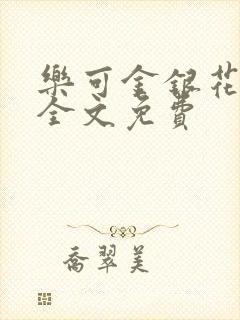 樂可金銀花
全文免費
喬翠美